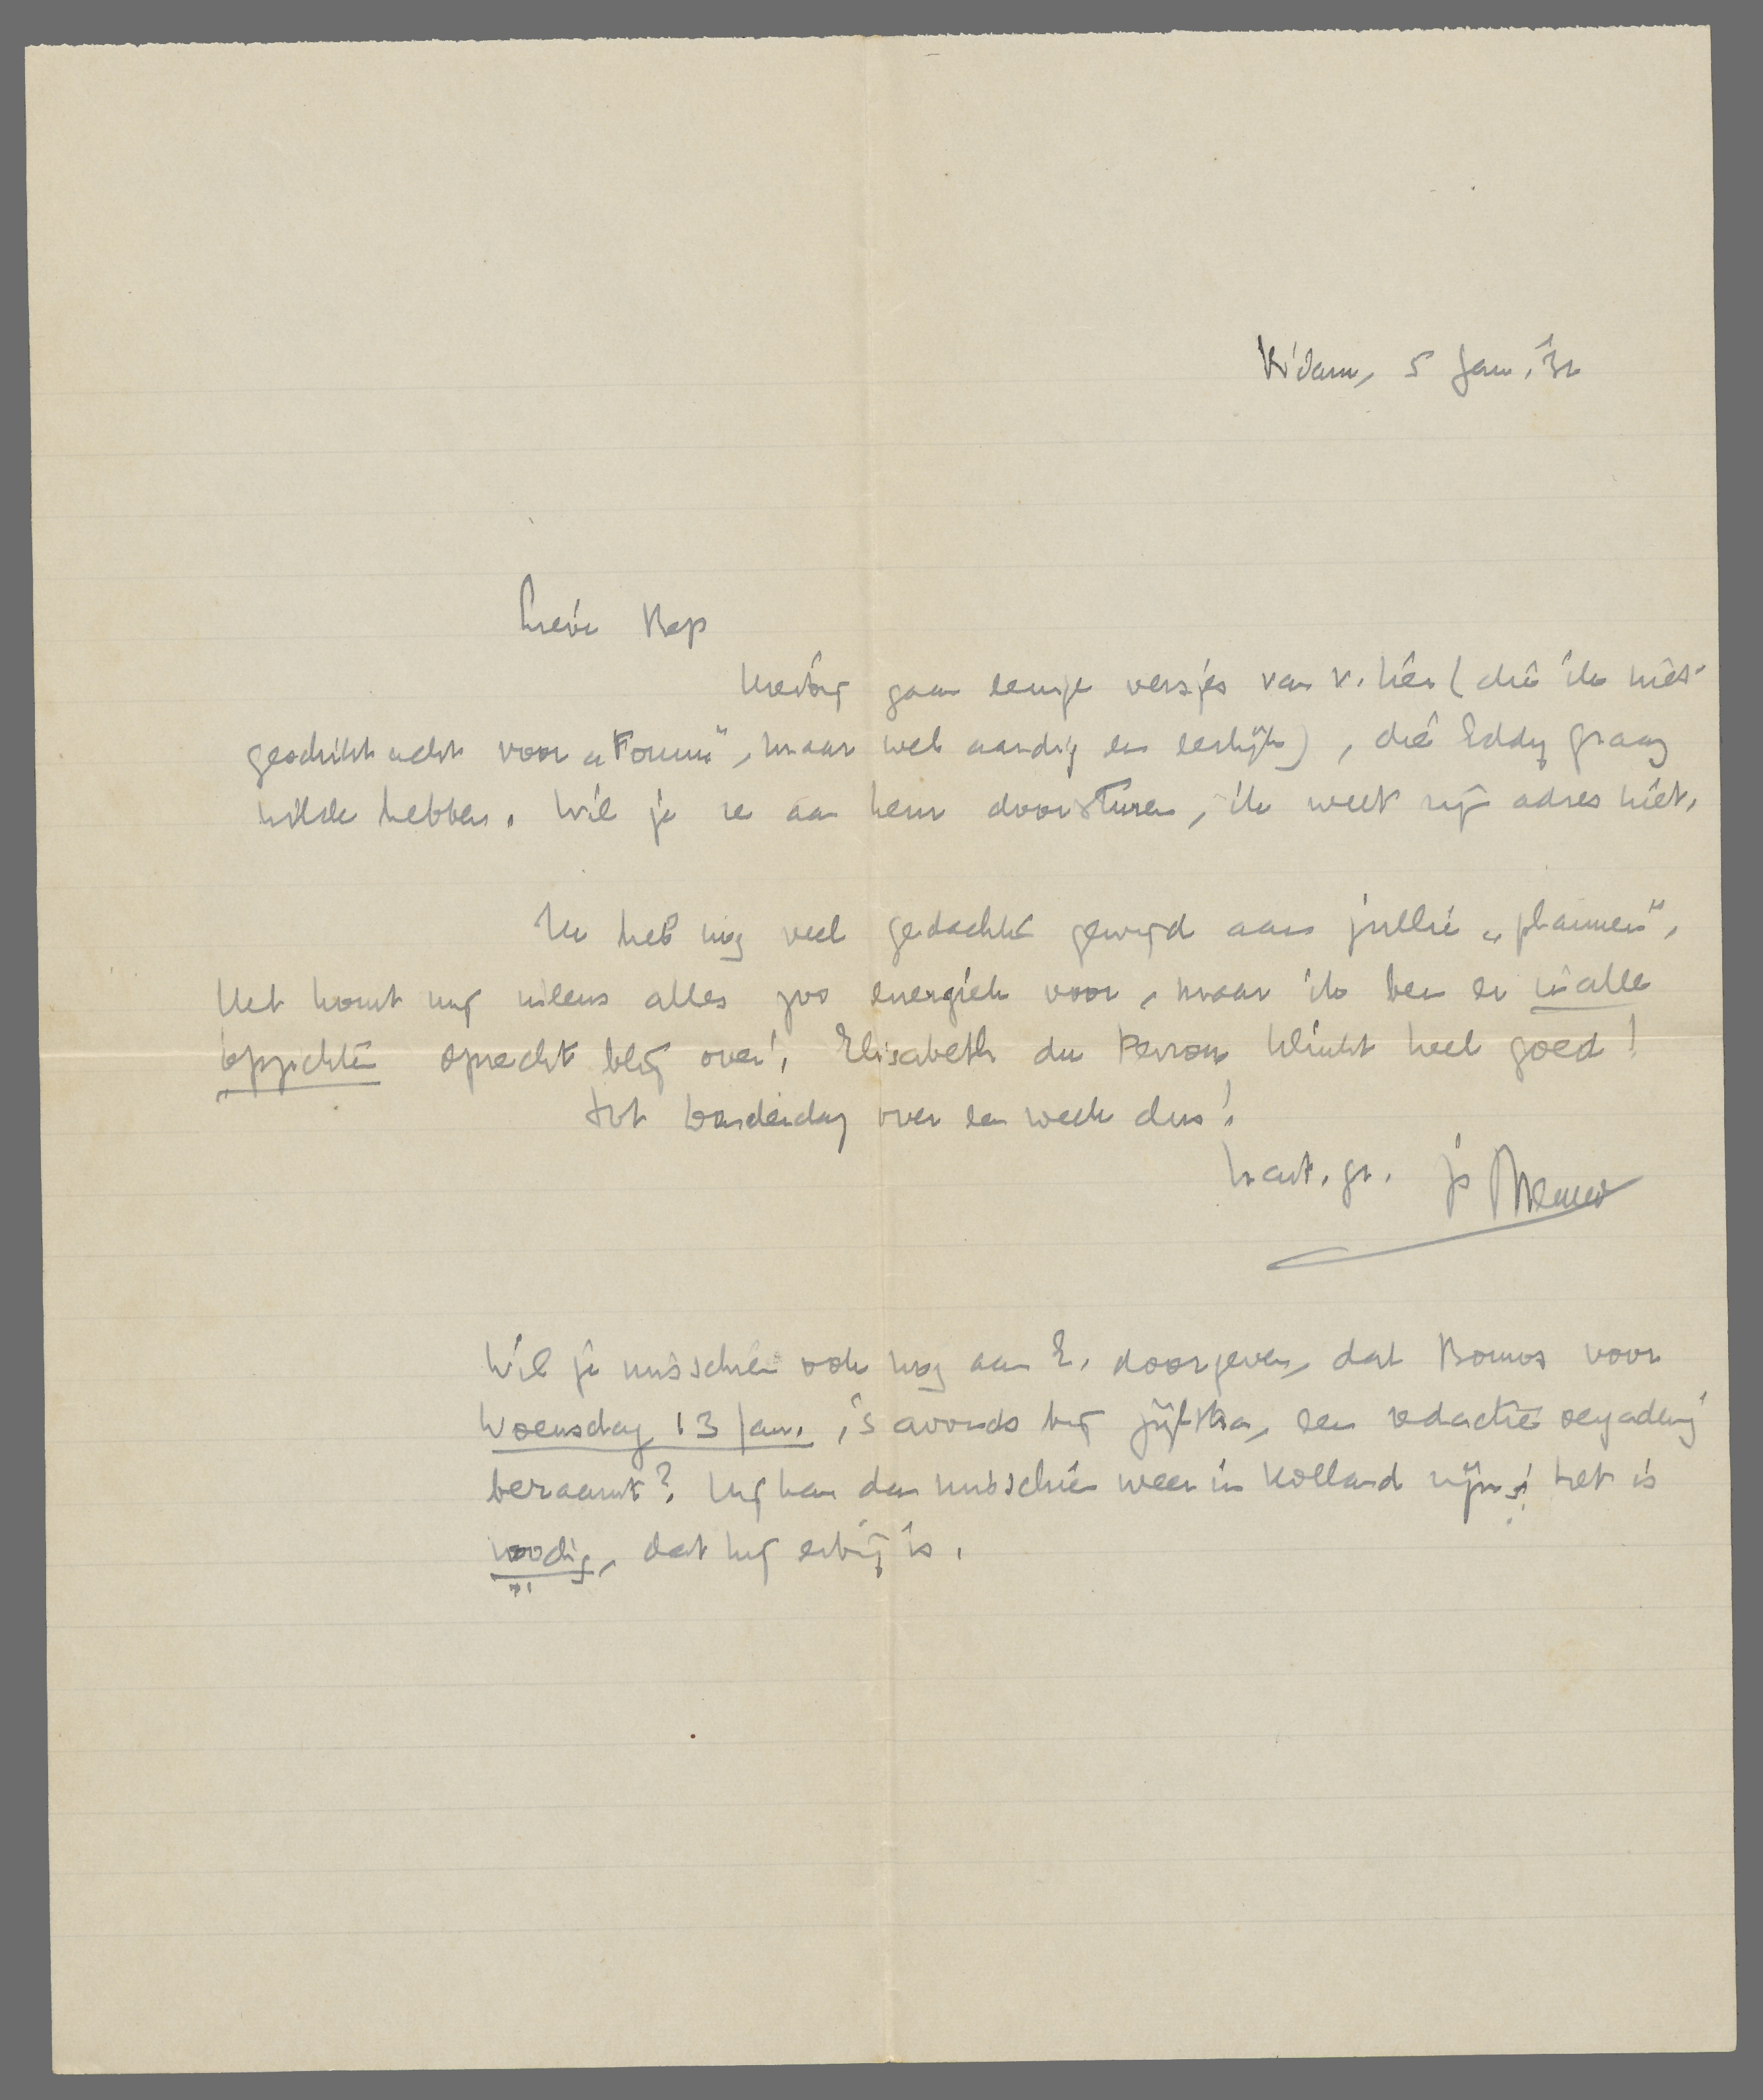 R'dam, 5 Jan. '32
Lieve Bep
Hierbij gaan eenige versjes van v. Lier (die ik niet
geschikt acht voor „Forum", maar wel aardig en eerlijk), die Eddy graag
wilde hebben. Wil je ze aan hem doorsturen, ik weet zijn adres niet.
Ik heb nog veel gedachten gewijd aan jullie „plannen".
Het komt mij ineens alles zoo energiek voor, maar ik ben er in alle
opzichten oprecht blij over! Elisabeth du Perron klinkt heel goed!
Tot Donderdag over een week dus!
hart. gr. je Menno
Wil je misschien ook nog aan E. doorgeven, dat Bouws voor
Woensdag 13 Jan., 's avonds bij Zijlstra, een redactievergadering
beraamt? Hij kan dan misschien weer in Holland zijn; het is
noodig, dat hij erbij is.